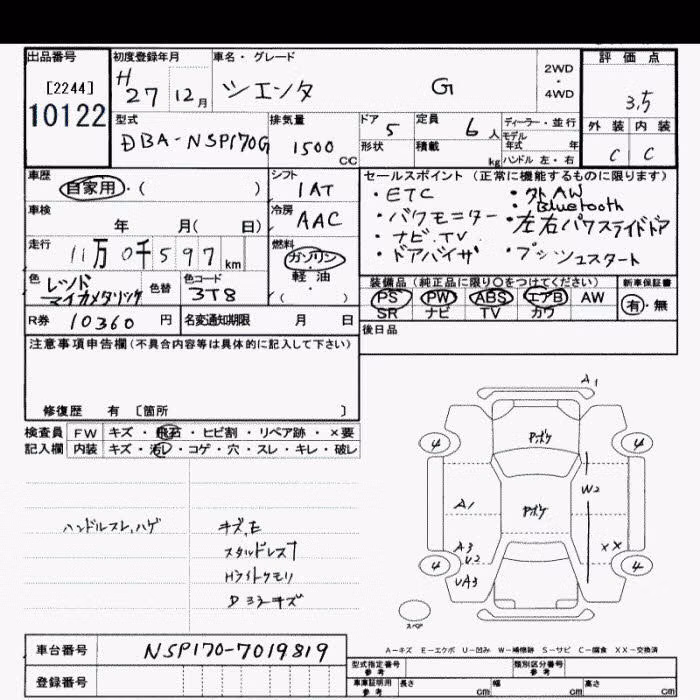 出品番号 初度登録年月 車名・グレード 2WD・4WD 評価点
[2244] H27 12月 シエンタ G 3.5
10122 外装 内装
C C
型式 排気量 ドア 定員 ディーラー・並行
DBA-NSP170G 1500cc 5 6人 モデル年式 年
形状 積載 kg ハンドル 左・右
車歴 シフト セールスポイント (正常に機能するものに限ります)
自家用・( ) 1AT ・ETC ・外AW
・Bluetooth
車検 冷房 ・バクモニター ・左右パワスライドドア
年 月( 日) AAC ・ナビ.TV
走行 燃料 ・ドアバイザ ・プッシュスタート
11万0千597km ガソリン・軽・油・( )
色 レッドマイカメタリック 色替 色コード 3T8
装備品(純正品に限り○をつけてください) 新車保証書
PS PW ABS エアB AW 有・無
SR ナビ TV カワ
R券 10360円 名変通知期限 月 日
後日品
注意事項申告欄(不具合内容等は具体的に記入して下さい)
修復歴 有 〔箇所 〕
検査員 FW キズ・飛石・ヒビ割・リペア跡・×要
記入欄 内装 キズ・汚レ・コゲ・穴・スレ・キレ・破レ
ハンドルスレ,ハゲ
キズ,E
スタルドレス1
Hライトクモリ
A1
Pボケ
4 4
W2
A1 Pボケ
A3
U2
XX
4 4
UA3
スペア
A-キズ E-エクボ U-凹み W-補修跡 S-サビ C-腐食 XX-交換済
車台番号 NSP170-7019819
登録番号
型式指定番号 参考 類別区分番号 参考
車庫証明用 参考 長さ cm 幅 cm 高さ cm